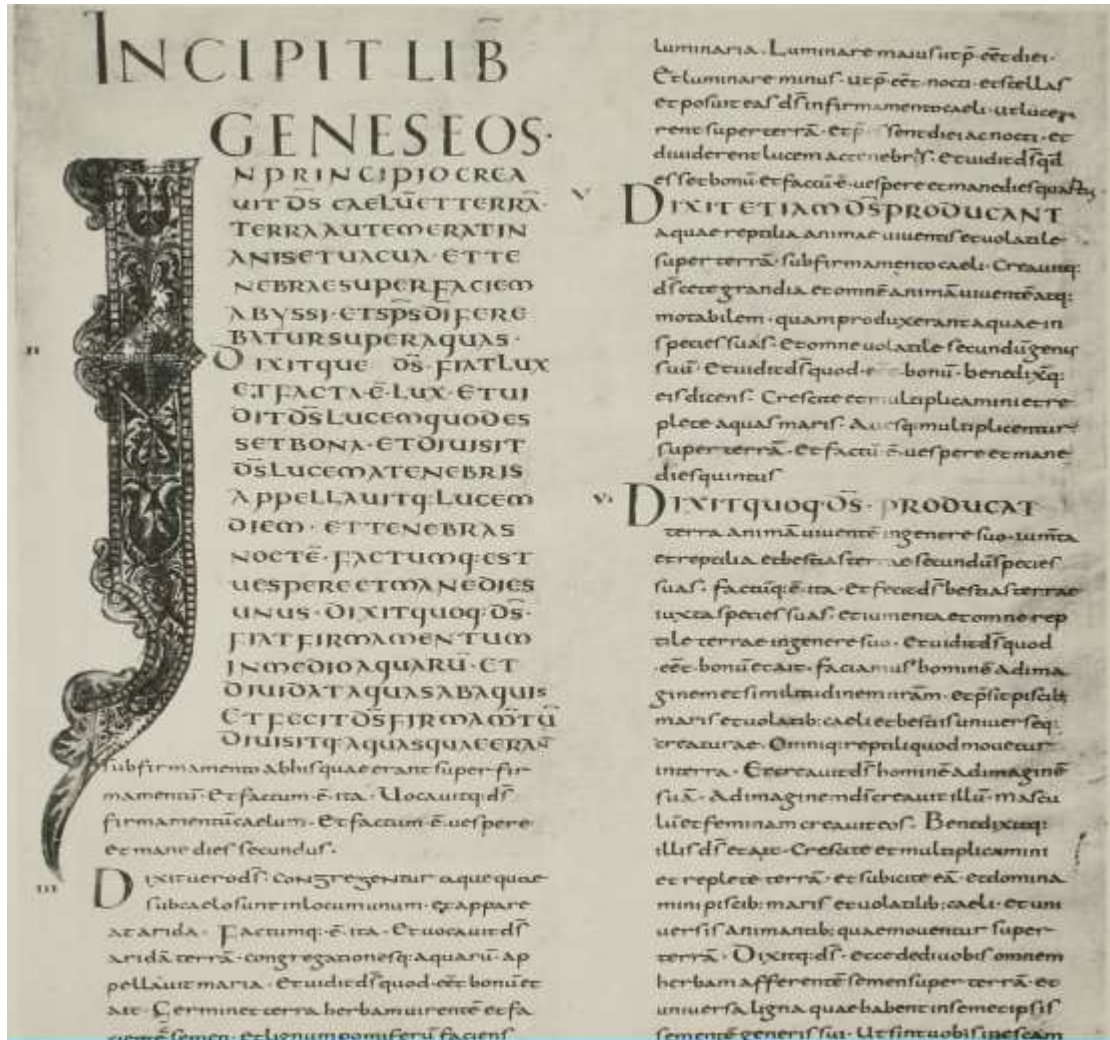 INCIPIT LIB̄
GENESEOS·
N PRINCIPIO CREA
UIT DS̄ CAELŪ ET TERRĀ·
TERRA AUTEM ERAT IN
ANIS ET UACUA· ET TE
NEBRAE SUPER FACIEM
ABYSSI· ET SPS̄ DĪ FERE
BATUR SUPER AQUAS·
II
DIXITQUE DS̄· FIAT LUX
ET FACTA Ē LUX· ET UI
DIT DS̄ LUCEM QUOD ES
SET BONA· ET DIUISIT
DS̄ LUCEM A TENEBRIS
APPELLAUITQ: LUCEM
DIEM· ET TENEBRAS
NOCTĒ· FACTUMQ: EST
UESPERE ET MANE DIES
UNUS· DIXIT QUOQ: DS̄·
FIAT FIRMAMENTUM
IN MEDIO AQUARŪ· ET
DIUIDAT AQUAS AB AQUIS
ET FECIT DS̄ FIRMAM̄TŪ
DIUISITQ: AQUAS QUAE ERAN̄
sub firmamento ab his quae erant super fir
mamentū· Et factum ē ita· Uocauitq: ds̄
firmamentū caelum· Et factum ē uespere
et mane dies secundus·
III
Dixit uero ds̄· Congregentur aque quae
sub caelo sunt in locum unum· et appare
at arida· Factumq: ē ita· Et uocauit ds̄
aridā terrā· congregationesq: aquarū ap
pellauit maria· Et uidit ds̄ quod eēt bonū et
ait· Germinet terra herbam uirentē et fa
cientē semen· et lignum pomiferū faciens
luminaria· Luminare maius ut p̄eēt diei·
Et luminare minus· ut p̄eēt nocti· et stellas
et posuit eas ds̄ in firmamento caeli· ut luce
rent super terrā· et p̄ sent diei ac nocti· et
diuiderent lucem ac tenebris· Et uidit ds̄ qd̄
esset bonū· Et factū ē· uespere et mane dies quartus·
V
DIXIT ETIAM DS̄ PRODUCANT
aquae reptilia animae uiuentis et uolatile
super terrā· sub firmamento caeli· Creauitq:
ds̄ cete grandia et omnē animā uiuentē atq:
motabilem· quam produxerant aquae in
species suas· Et omne uolatile secundū genus
suū· Et uidit ds̄ quod bonū· benedixitq:
eis dicens· Crescite et multiplicamini et re
plete aquas maris· Auesq: multiplicentur
super terrā· Et factū ē· uespere et mane
dies quintus
VI
DIXIT QUOQ: DS̄· PRODUCAT
terra animā uiuentē in genere suo· iumta
et reptilia et bestias ter secundū species
suas· factūq: ē ita· Et fecit ds̄ bestias terrae
iuxta species suas· et iumenta et omne rep
tile terrae in genere suo· Et uidit ds̄ quod
eēt bonū et ait· faciamus hominē ad ima
ginem et similitudinem nrām· et p̄sit piscib:
maris et uolatilib: caeli et bestiis uniuerseq:
creaturae· Omniq: reptili quod mouetur
in terra· Et creauit ds̄ hominē ad imaginē
suā· Ad imaginem di creauit illū· mascu
lū et feminam creauit eos· Benedixitq:
illis ds̄ et ait· Crescite et multiplicamini
et replete terrā· et subicite eā· et domina
mini piscib: maris et uolatilib: caeli· Et uni
uersis animantib: quae mouentur super
terrā· Dixitq: ds̄· ecce dedi uobis omnem
herbam afferentē semen super terrā· et
universa ligna quae habent in semetipsis
sementē generis sui· Ut sint uobis in escam